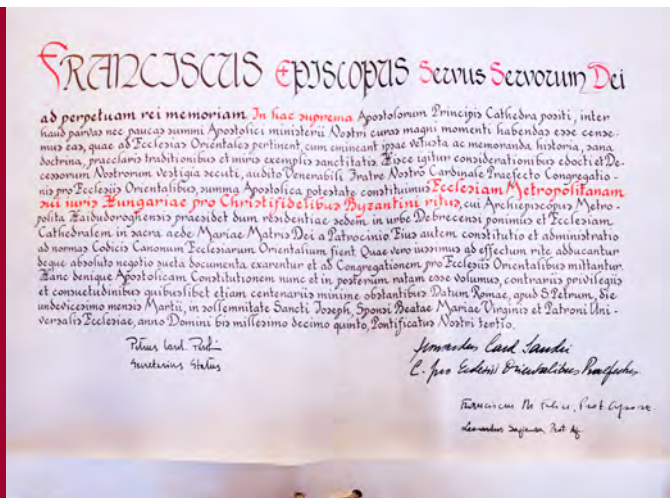 FRANCISCUS EPISCOPUS Servus Servorum Dei
ad perpetuam rei memoriam In hac suprema Apostolorum Principis Cathedra positi, inter
haud parvas nec paucas summi Apostolici ministerii Nostri curas magni momenti habendas esse cense-
mus eas, quae ad Ecclesias Orientales pertinent, cum emineant ipsae vetusta ac memoranda historia, sana
doctrina, praeclaris traditionibus et miris exemplis sanctitatis. Hisce igitur considerationibus edocti et De-
cessorum Nostrorum vestigia secuti, audito Venerabili Fratre Nostro Cardinale Praefecto Congregatio-
nis pro Ecclesiis Orientalibus, summa Apostolica potestate constituimus Ecclesiam Metropolitanam
sui iuris Hungariae pro Christifidelibus Byzantini ritus, cui Archiepiscopus Metro-
polita Haidudoroghensis praesidet dum residentiae sedem in urbe Debrecensi ponimus et Ecclesiam
Cathedralem in sacra aede Mariae Matris Dei a Patrocinio. Eius autem constitutio et administratio
ad normas Codicis Canonum Ecclesiarum Orientalium fient. Quae vero iussimus ad effectum rite adducantur
deque absoluto negotio sueta documenta exarentur et ad Congregationem pro Ecclesiis Orientalibus mittantur.
Hanc denique Apostolicam Constitutionem nunc et in posterum ratam esse volumus, contrariis privilegiis
et consuetudinibus quibuslibet etiam centenariis minime obstantibus. Datum Romae, apud S. Petrum, die
undevicesimo mensis Martii, in sollemnitate Sancti Joseph, Sponsi Beatae Mariae Virginis et Patroni Uni-
versalis Ecclesiae, anno Domini bis millesimo decimo quinto, Pontificatus Nostri tertio.
Petrus Card. Parolin
Secretarius Status
Leonardus Card. Sandri
C. pro Ecclesiis Orientalibus Praefectus
Franciscus
Leonardus